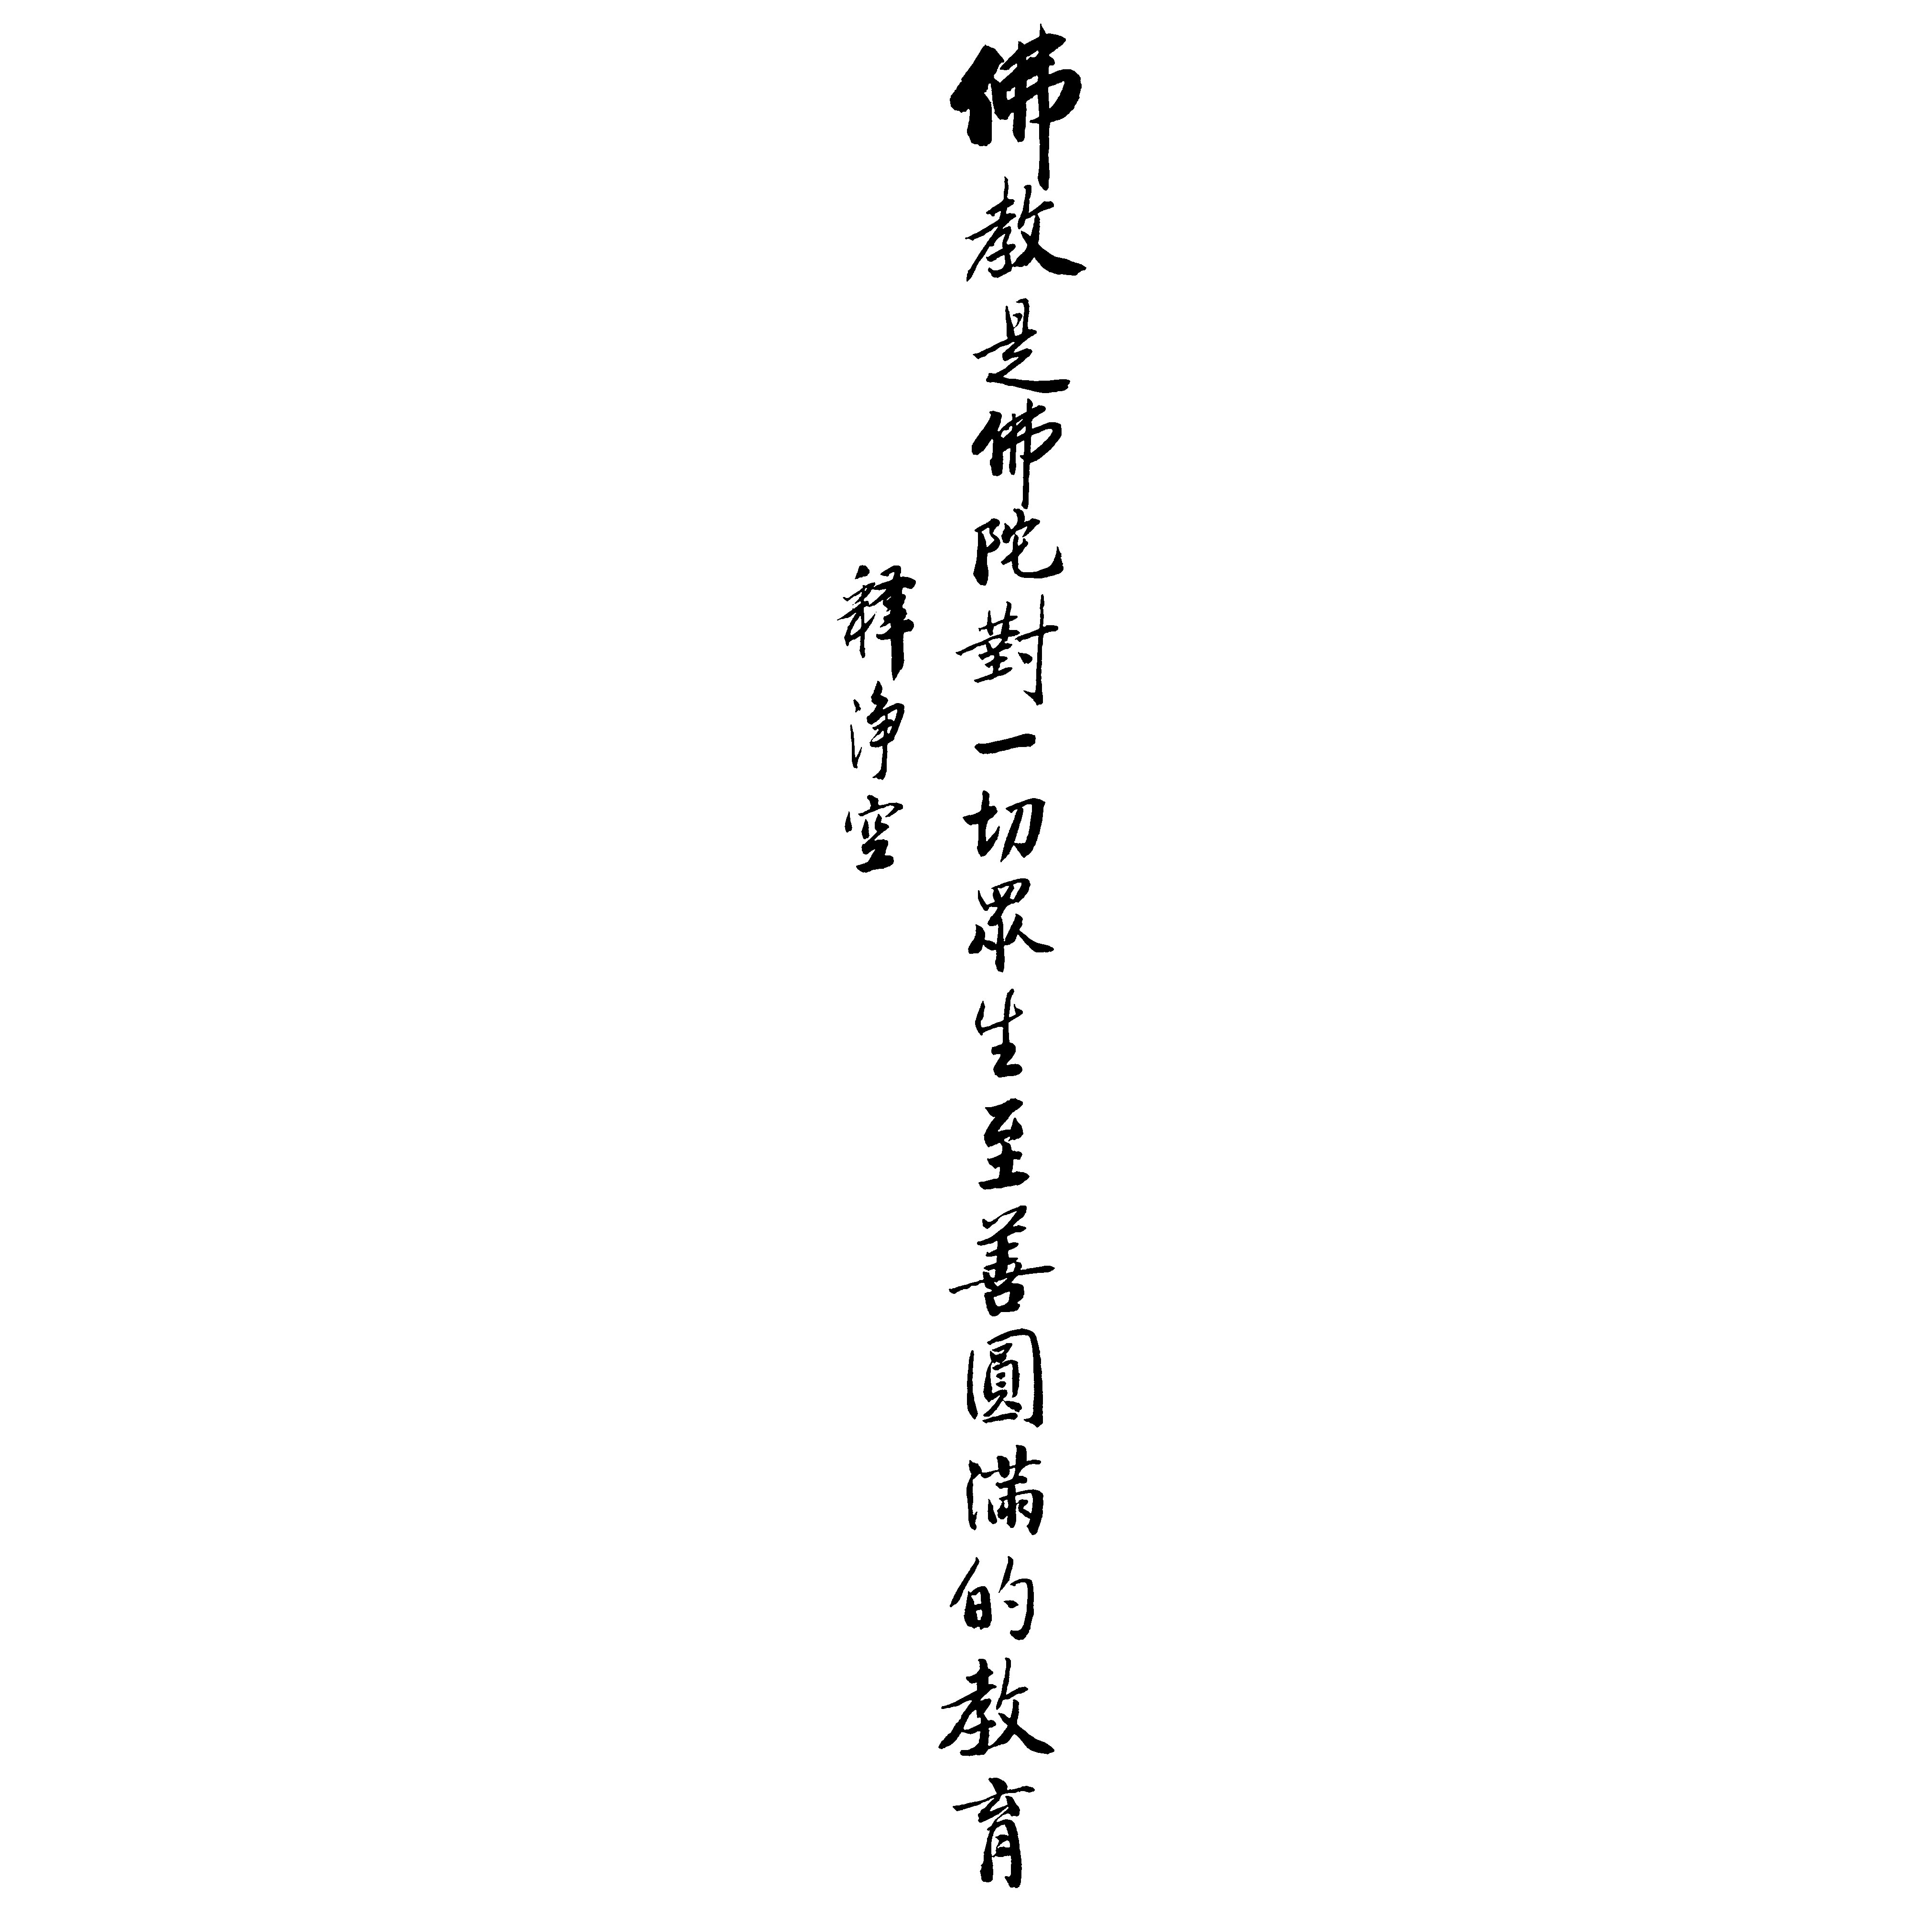 佛教是佛陀對一切眾生至善圓滿的教育
釋淨空